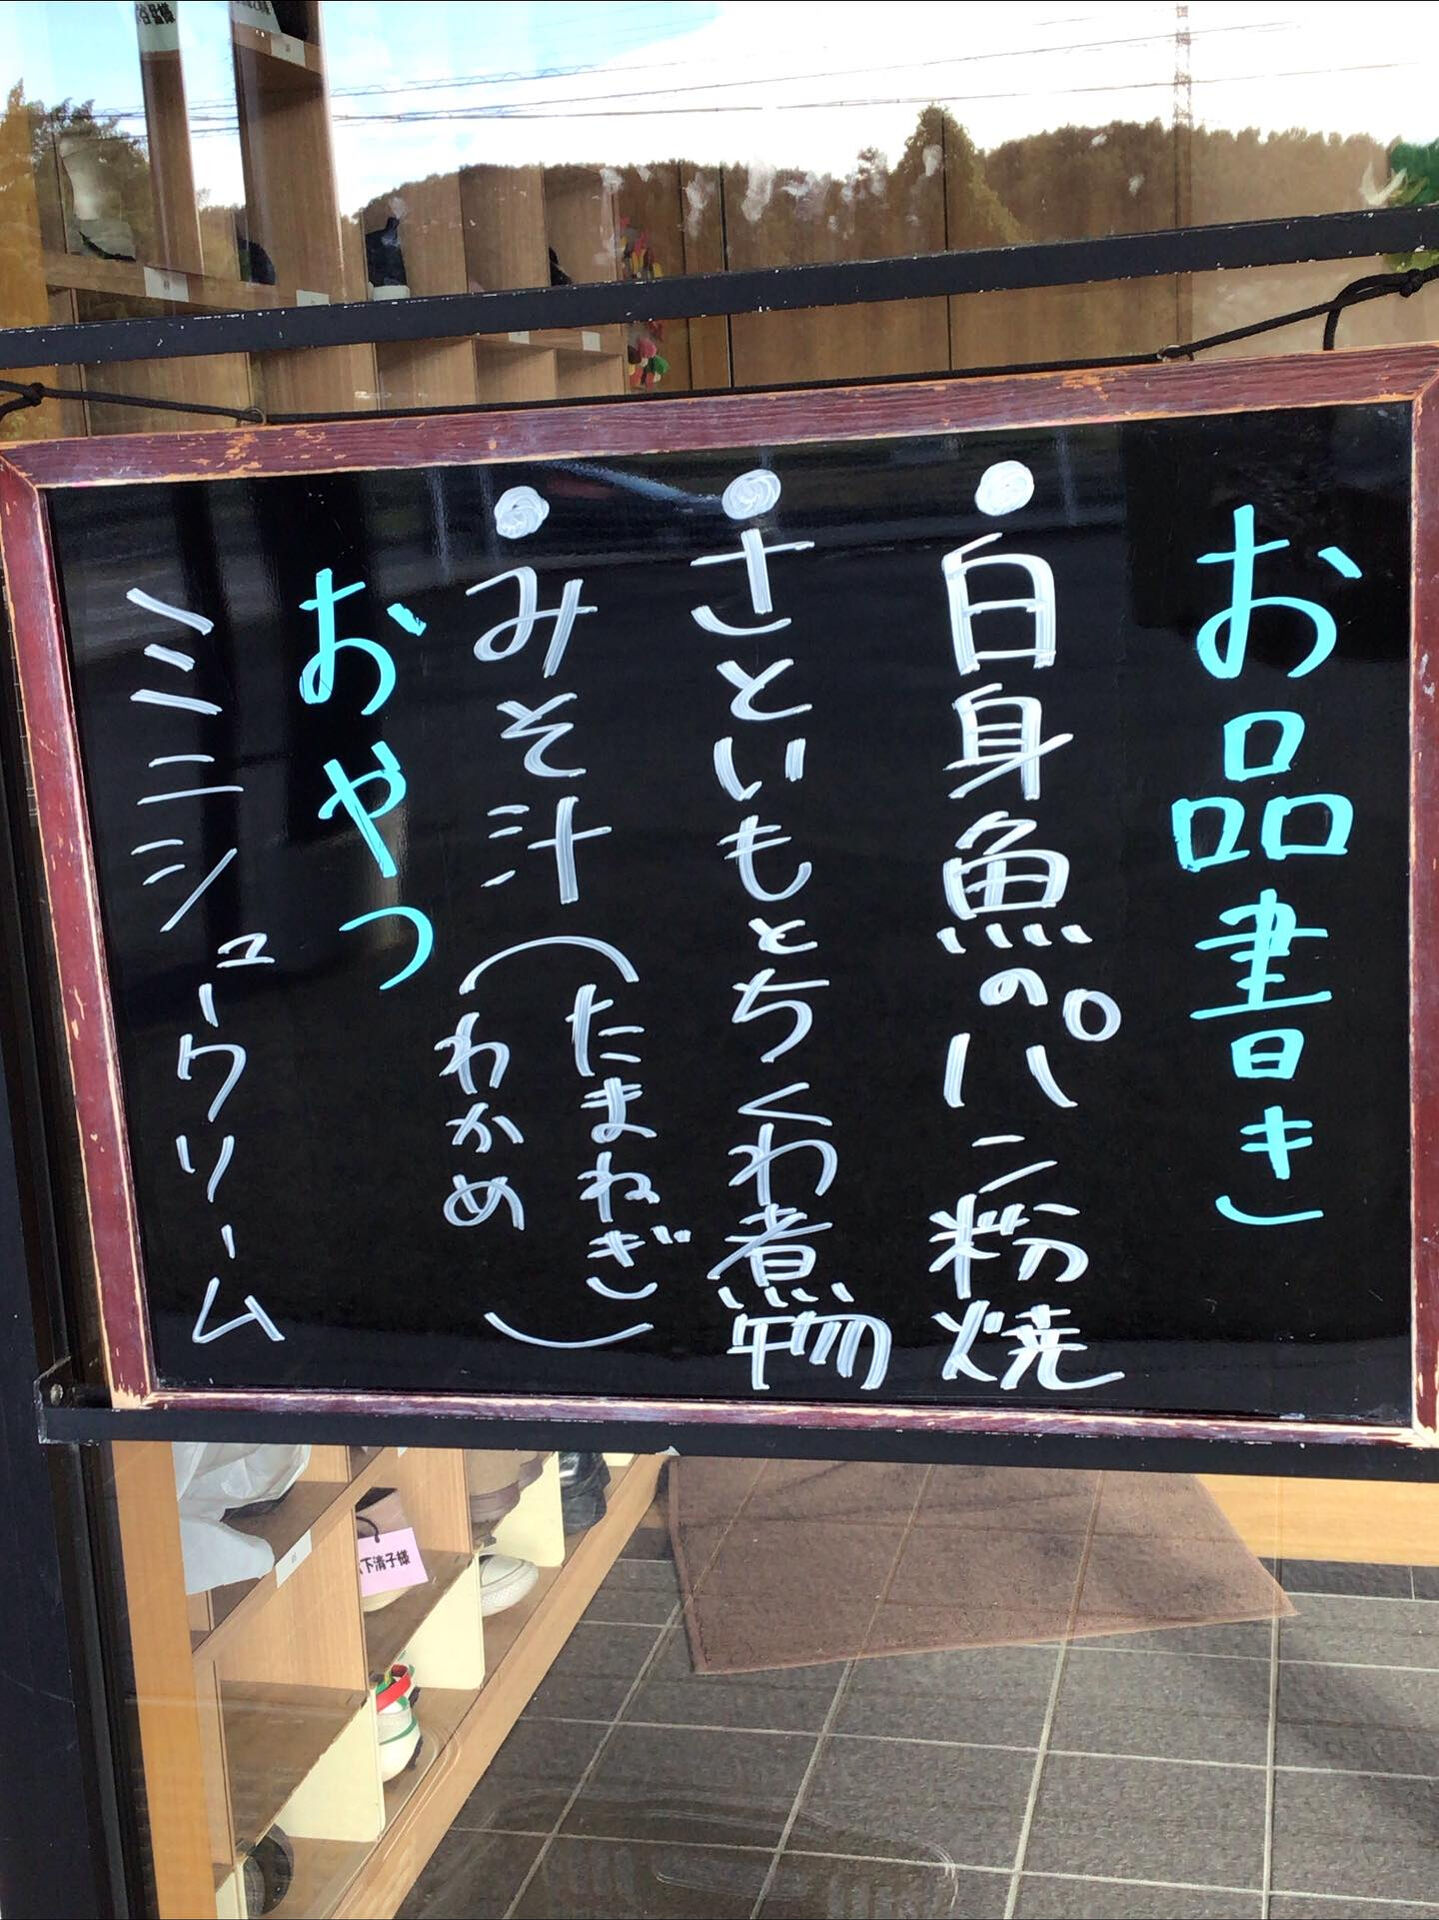 お品書き
・白身魚のパン粉焼
・さといもとちくわ煮物
・みそ汁(たまねぎ
わかめ)
おやつ
ミニシュークリーム
下清子様